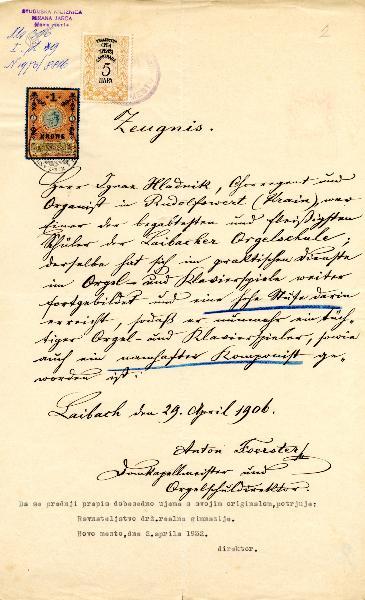 ŠTUDIJSKA KNJIŽNICA
MIRANA JARCA
2
5
PARA
1
KRONE
Zeugnis.
Herr Ignaz Hladnik, Chorregent und
Organist in Rudolfswert (Krain), war
Einer der begabtesten und fleißigsten
Schüler der Laibacher Orgelschule;
derselbe hat sich im praktischen Dienste
im Orgel- und Klavierspiele weiter
fortgebildet und eine hohe Stufe darin
erreicht, sodaß er nunmehr ein tüch-
tiger Orgel- und Klavierspieler, sowie
auch ein namhafter Komponist ge-
worden ist.
Laibach den 29. April 1906.
Anton Foerster
Domkapellmeister und
Orgelschuldirektor.
Da se prednji prepis dobesedno ujema s svojim originalom, potrjuje:
Ravnateljstvo drž. realne gimnazije.
Novo mesto, dne 2. aprila 1932.
direktor.